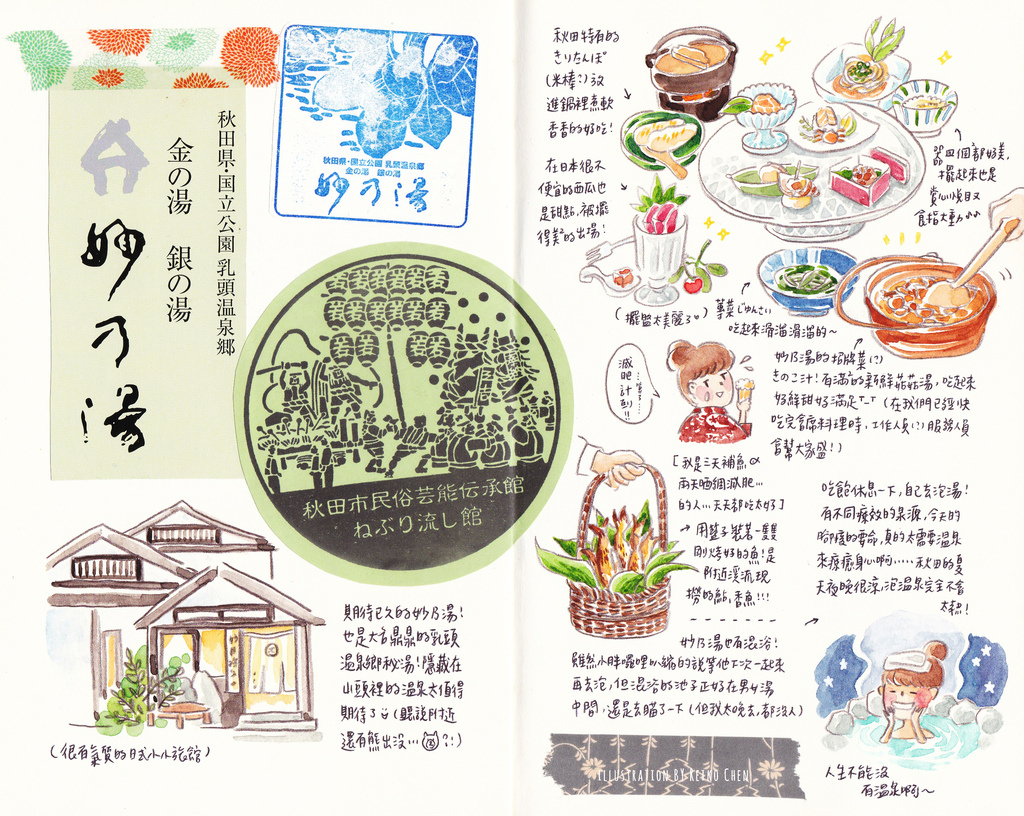 秋田県・国立公園 乳頭温泉郷
金の湯 銀の湯
妙乃湯
秋田県・国立公園 乳頭温泉郷
金の湯 銀の湯
妙乃湯
秋田市民俗芸能伝承館
ねぶり流し館
期待已久的妙乃湯!
也是大名鼎鼎的乳頭
温泉鄉秘湯!隱藏在
山頭裡的温泉太值得
期待了
(聽說附近
還有熊出沒…?!)
(很有氣質的日式小小旅館)
秋田特有的
きりたんぽ
(米棒)放
進鍋裡煮軟
香香的好吃!
在日本很不
便宜的西瓜也
是甜點,被擺
得美美的出場!
(擺盤太美麗了)
器皿個個都好美,
擺起來也是
賞心悅目又
食指大動♪♪
蓴菜じゅんさい
吃起來滑溜滑溜的~
妙乃湯的招牌菜
きのこ汁!有滿滿的新鮮菇菇湯,吃起來
好鮮甜好滿足T_T(在我們已經快
吃完宴席料理時,工作人員
服務人員
會幫大家盛!)
減肥計劃!!
[我是三天補魚
兩天曬網減肥…
的人…天天都吃太好]
→用籃子裝著一隻隻
剛烤好的魚!是
附近溪流現
撈的
香魚!!!
吃飽休息一下,自己去泡湯!
有不同療效的泉源,今天的
腳痠的要命,真的太需要温泉
來療癒身心啊……秋田的夏
天夜晚很涼,泡温泉完全不會
太熱!
妙乃湯也有混浴!
雖然小胖囉哩叭縮的說等他下次一起來
再去泡,但混浴的池子正好在男女湯
中間,還是去瞄了一下(但我太晚去,都沒人)
人生不能沒
有温泉啊~
ILLUSTRATION BY KEENO CHEN